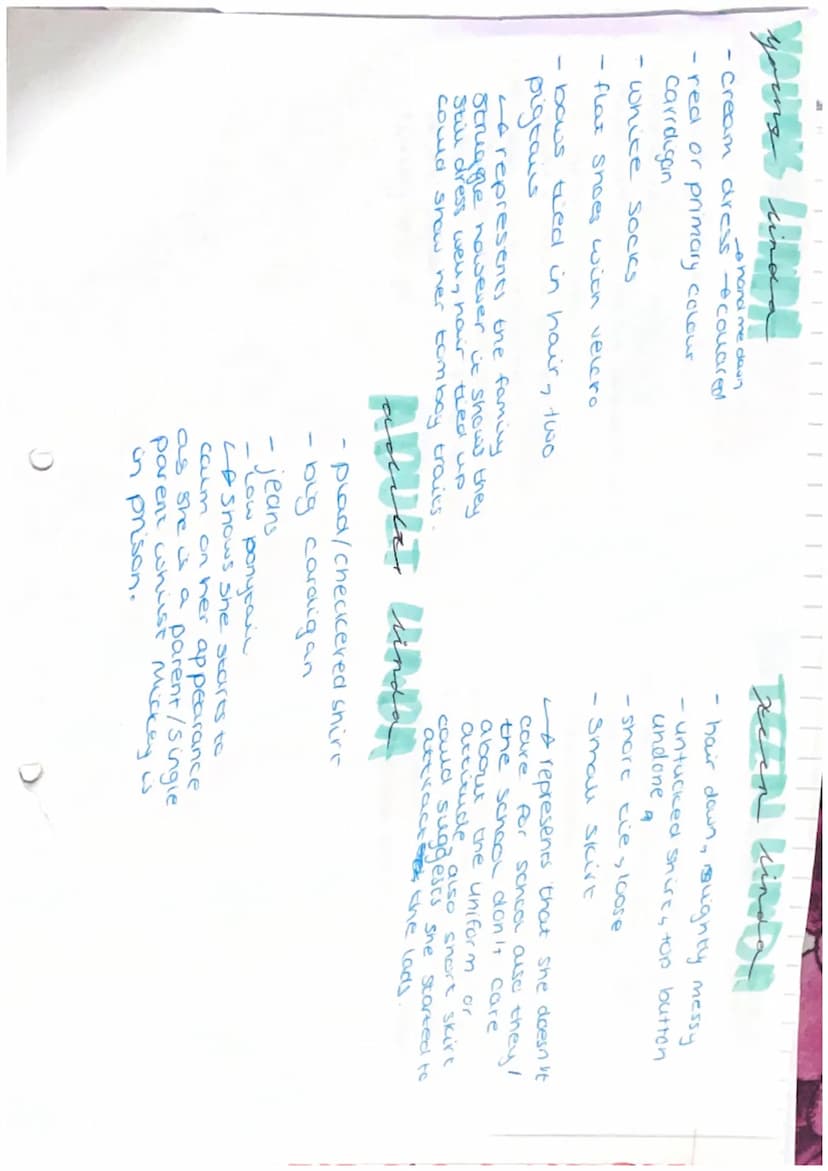 YOUNG LINDA
young linda
→ hand me down
- cream dress → collared
- red or primary colour
cardigan
- white socks
- flat shoes with velcro
- bows tied in hair, two
pigtails
↳ represents the family
struggle however it shows they
still dress well, hair tied up
could show her tomboy traits.
TEEN LINDA
teen linda
- hair down, slightly messy
- untucked shirt, top button
undone,
- short tie, loose
- small skirt
↳ represents that she doesn't
care for school also they/
the school don't care
about the uniform or
attitude also short skirt
could suggests she started to
attract the lads.
ADULT LINDA
adult linda
- plad/checkered shirt
- big cardigan
- jeans
- low ponytail
↳ shows she starts to
calm on her appearance
as she is a parent/single
parent whilst Mickey is
in prison.